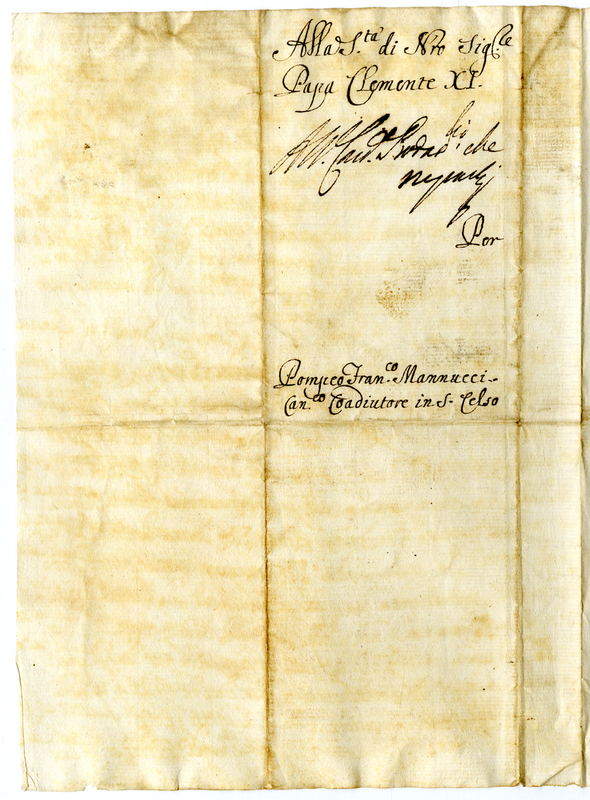 Alla S.tà di Nro Sig.re
Papa Clemente XI.
Al Card.e che
ne parli
Per
Pompeo Fran.co Mannucci
Can.co Coadiutore in S. Celso